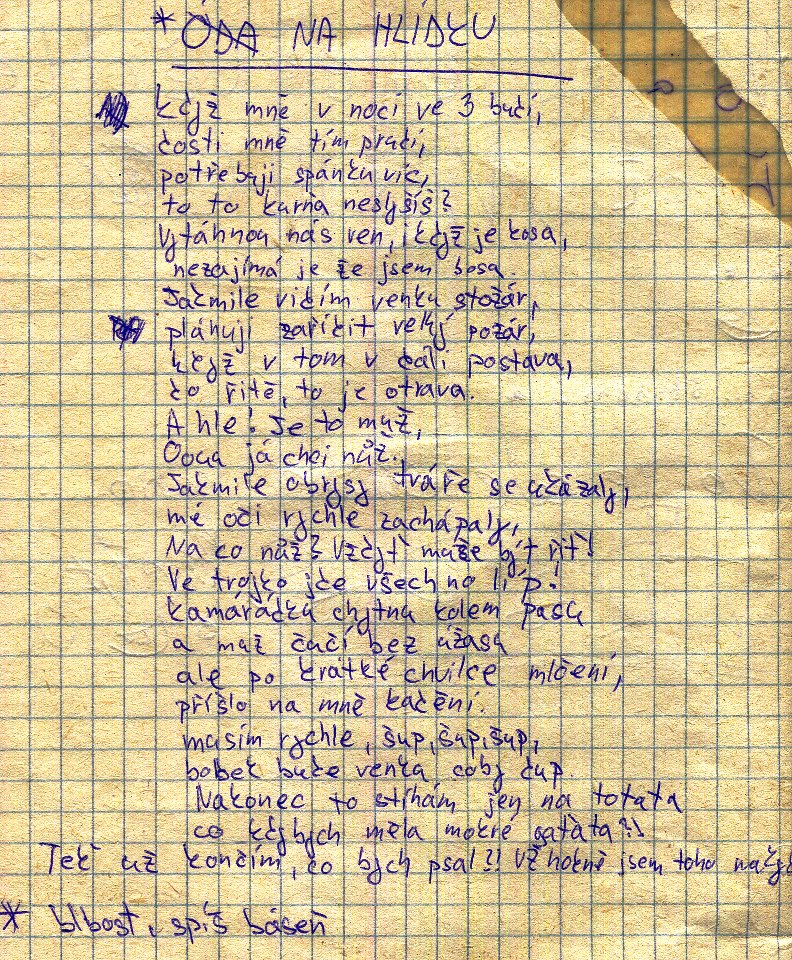 * ÓDA NA HLÍDKU
Když mně v noci ve 3 budí,
dosti mně tím prudí,
potřebuji spánku víc,
to to kurňa neslyšíš?
Vytáhnou nás ven, i když je kosa,
nezajímá je že jsem bosa.
Jakmile vidím venku stožár,
plánuji zařídit velký požár,
když v tom v dáli postava,
do řitě, to je otrava.
A hle! Je to muž,
Ooua já chci nůž.
Jakmile obrysy tváře se ukázaly,
mé oči rychle zachápaly,
Na co nůž? Vždyť může být řiť!
Ve trojko jde všechno líp!
Kamarádku chytnu kolem pasu
a muž čučí bez úžasu
ale po krátké chvilce mlčení,
příšlo na mně kadění.
musím rychle, šup, šup, šup,
bobek bude venku coby dup.
Nakonec to stíhám jen na totata
co kdybych měla mokré gatata?!
Teď už končím, co bych psal?! Už hodně jsem toho
* blbost, spíš báseň